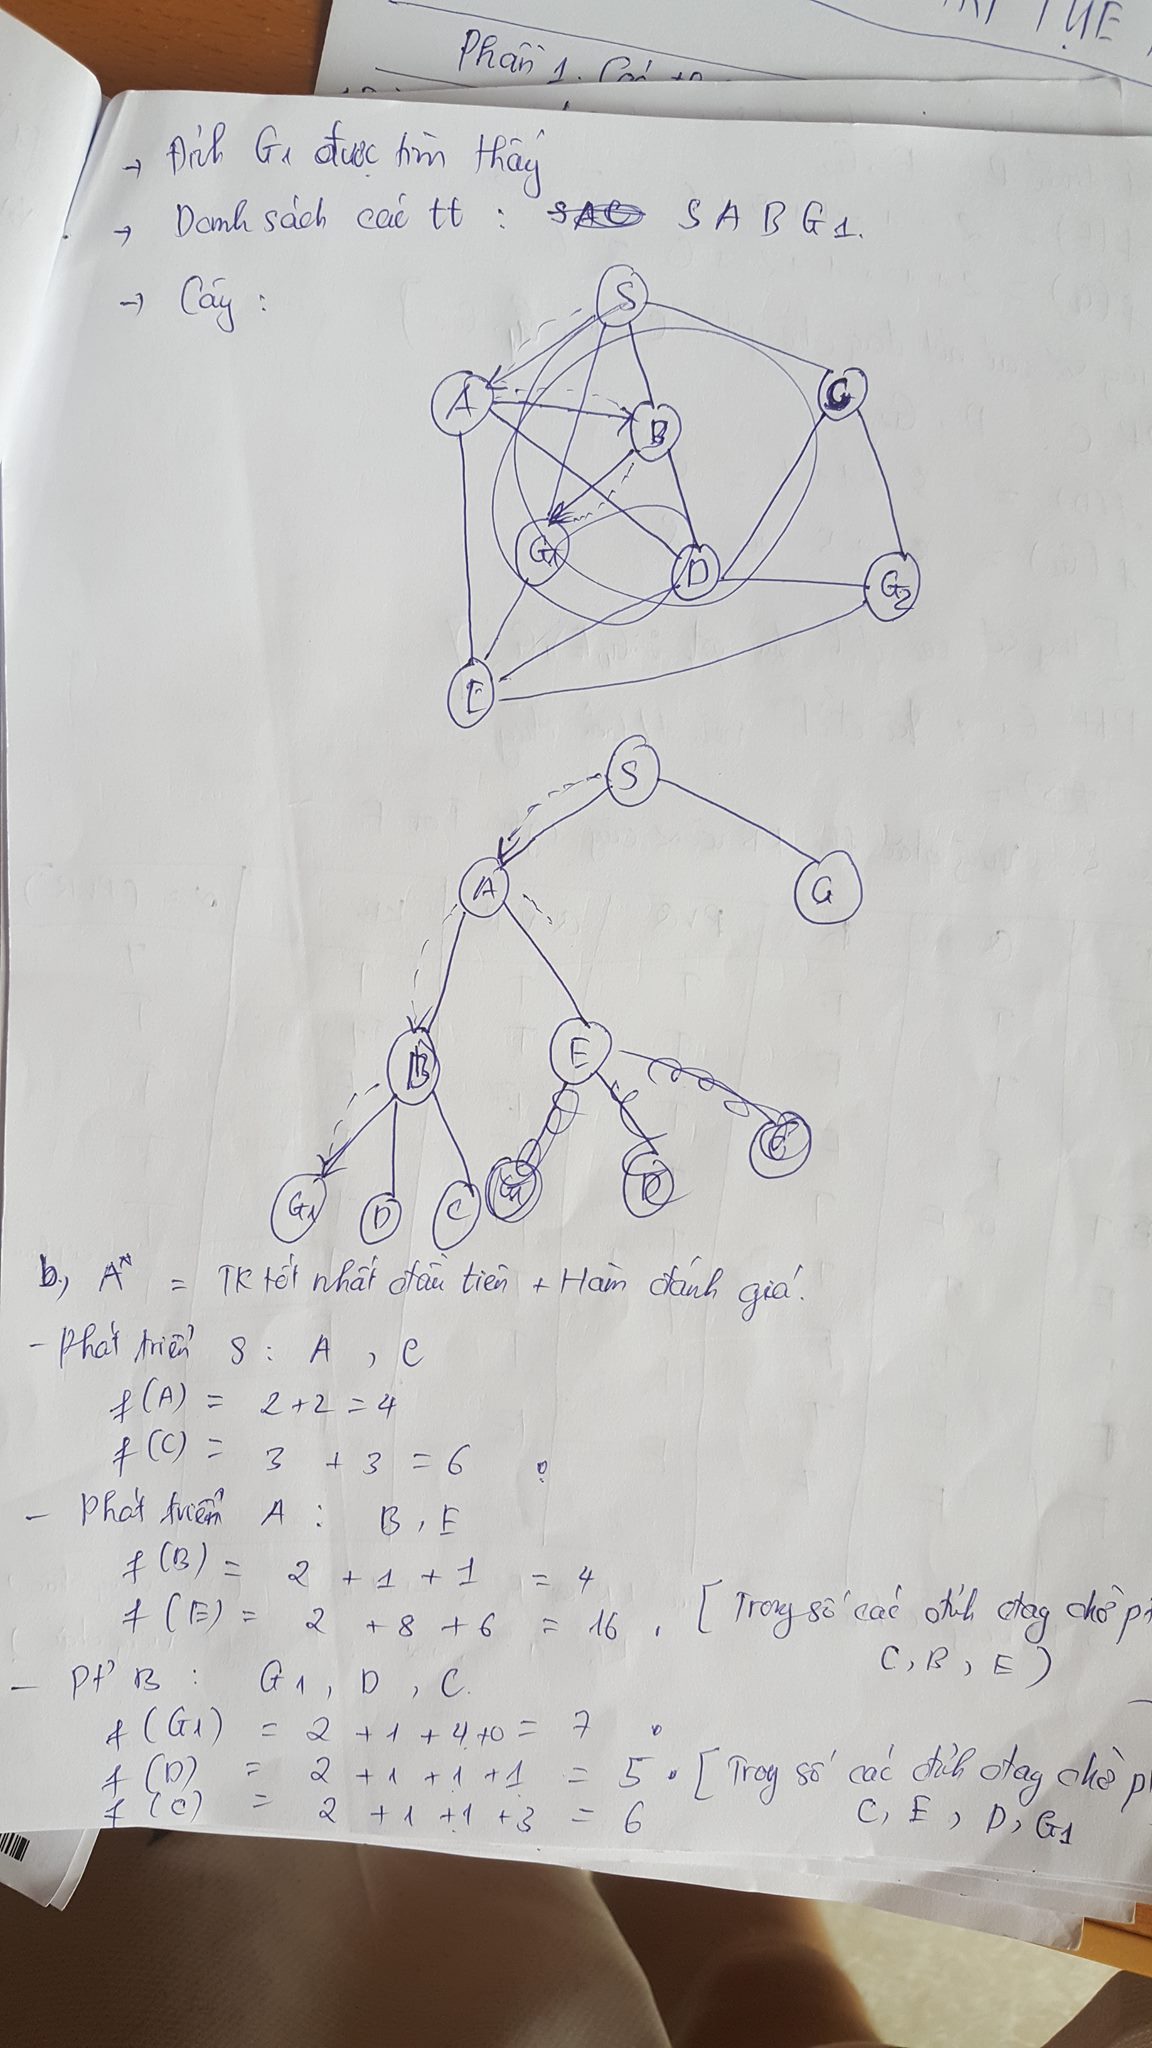 TRÍ TUỆ
Phần 1. Các
→ Đỉnh G1 được tìm thấy
→ Danh sách các tt : S A B G1.
→ Cây :
S
A
B
C
G1
D
G2
E
S
A
G
B
E
G1 D C G1 D C
b, A* = TK tốt nhất đầu tiên + Hàm đánh giá.
- Phát triển S : A , C
f(A) = 2+2 = 4
f(C) = 3 + 3 = 6
- Phát triển A : B , E
f(B) = 2 + 1 + 1 = 4
f(E) = 2 + 8 + 6 = 16 . [ Trong số các đỉnh đang chờ
C, B, E )
- PT B : G1 , D , C.
f(G1) = 2 + 1 + 4 + 0 = 7
f(D) = 2 + 1 + 1 + 1 = 5 . [ Trong số các đỉnh đang chờ
f(C) = 2 + 1 + 1 + 3 = 6 C, E, D, G1